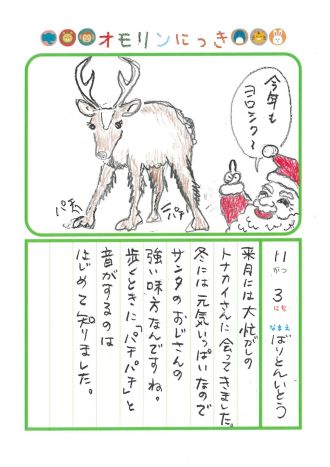 オモリンにっき
今年も
ヨロシク〜
パチ
パチ
11がつ3にち なまえ ばりとんいとう
来月には大忙がしの
トナカイさんに会ってきました。
冬には元気いっぱいなので
サンタのおじさんの
強い味方なんですね。
歩くときに「パチパチ」と
音がするのは
はじめて知りました。